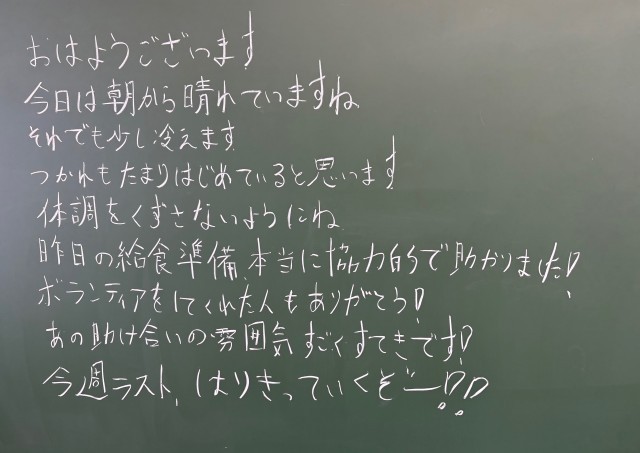 おはようございます
今日は朝から晴れていますね
それでも少し冷えます
つかれもたまりはじめていると思います
体調をくずさないようにね
昨日の給食準備、本当に協力的で助かりました!
ボランティアをしてくれた人もありがとう!
あの助け合いの雰囲気すごくすてきです!
今週ラスト、はりきっていくぞー!!